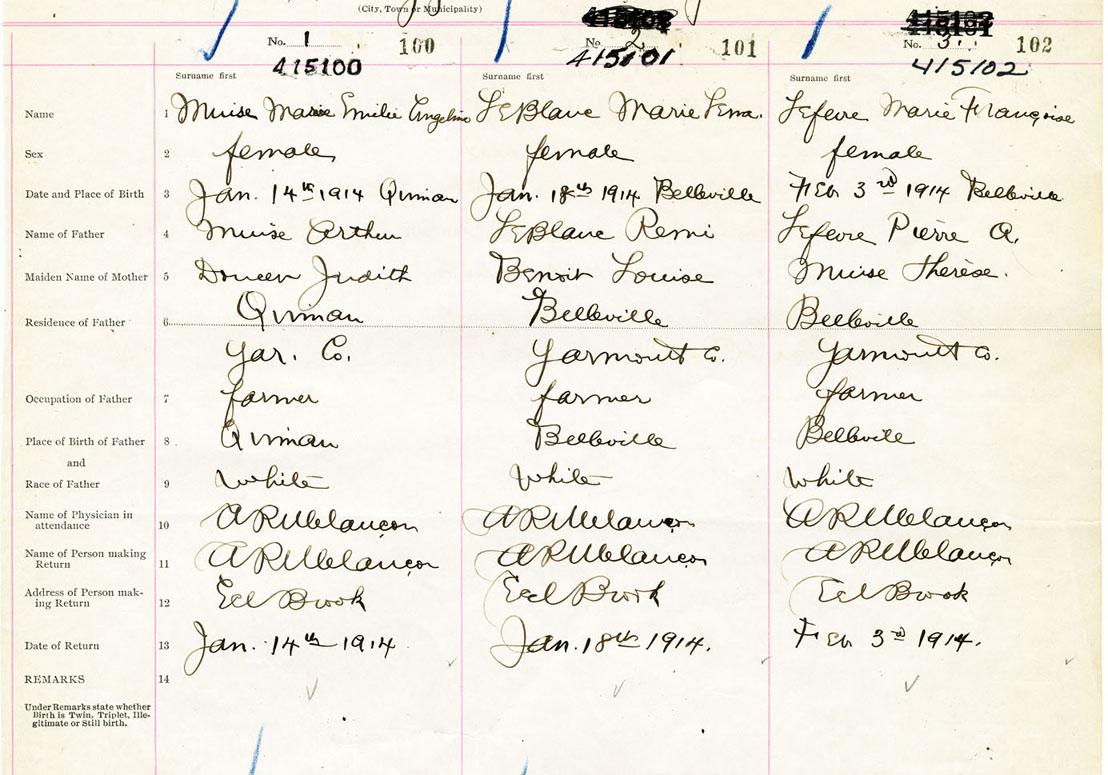 (City, Town or Municipality)
No. 1 100 No. 2 101 No. 3. 102
415100 415101 415102
Surname first Surname first Surname first
Name 1 Muise Marie Emilie Angelino LeBlanc Marie Lena. Lefevre Marie Françoise
Sex 2 female female female
Date and Place of Birth 3 Jan. 14th 1914 Quinan Jan. 18th 1914 Belleville Feb 3rd 1914 Belleville
Name of Father 4 Muise Arthur LeBlanc Remi Lefevre Pierre A.
Maiden Name of Mother 5 Doucen Judith Benoit Louise Muise Therèse.
Residence of Father 6 Quinan Belleville Belleville
Yar. Co. Yarmouth Co. Yarmouth Co.
Occupation of Father 7 farmer farmer farmer
Place of Birth of Father 8 Quinan Belleville Belleville
and
Race of Father 9 White White White
Name of Physician in
attendance 10 A R Melançon A R Melançon A R Melançon
Name of Person making
Return 11 A R Melançon A R Melançon A R Melançon
Address of Person mak-
ing Return 12 Eel Brook Eel Brook Eel Brook
Date of Return 13 Jan. 14th 1914 Jan. 18th 1914. Feb 3rd 1914.
REMARKS 14
Under Remarks state whether
Birth is Twin, Triplet, Ille-
gitimate or Still birth.